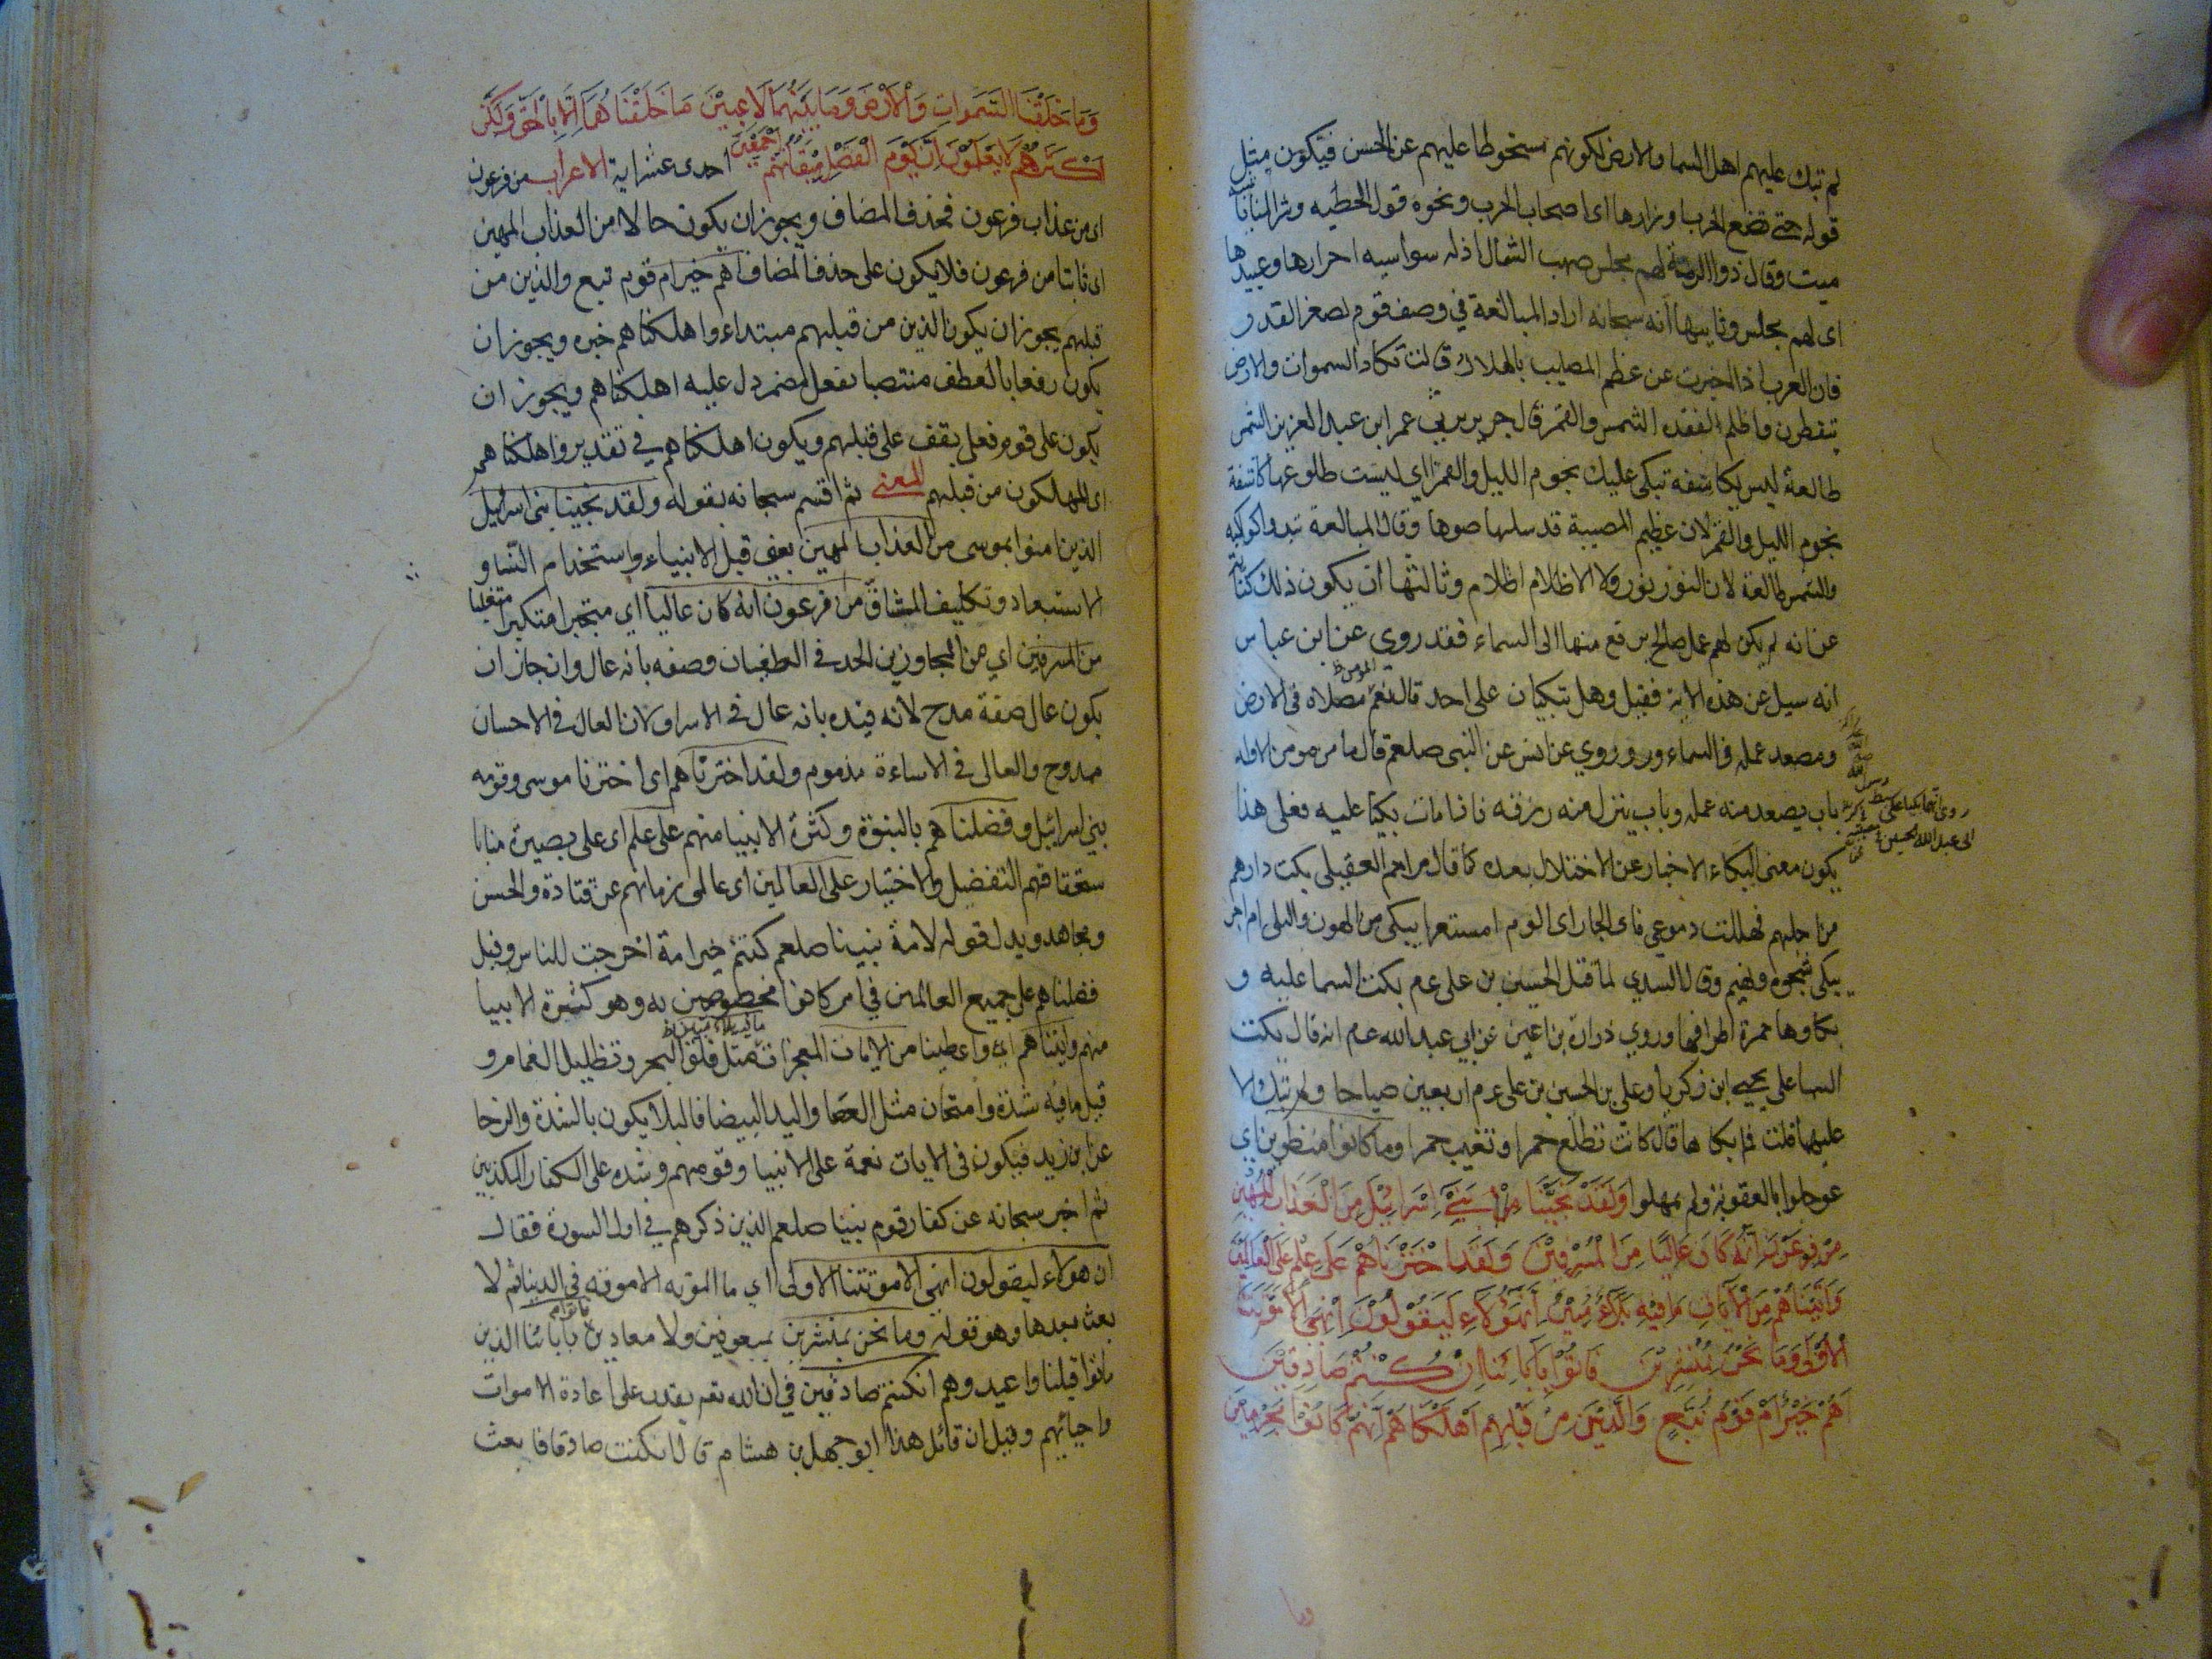 لم تبك عليهم اهل السما والارض لكونهم مسخوطا عليهم عن الحسن فيكون مثل
قوله حتى تضع الحرب اوزارها اى اصحاب الحرب ونحوه قول الحطيه وشر المنايا
ميت وقال ذوا الرمة لهم مجلس صهب السبال اذله سواسيه احرارها وعبيدها
اى لهم مجلس وثانيها انه سبحانه اراد المبالغة في وصف قوم لصغر القدر
فان العرب اذا اخبرت عن عظم المصايب بالهلاك قالت تكاد السموات والارض
تنفطرن واظلم لفقده الشمس والقمر قال جرير يرثي عمر ابن عبد العزيز الشمس
طالعة ليس بكاسفة تبكى عليك نجوم الليل والقمرا اي ليست طلوعها كاسفة
نجوم الليل والقمر لان عظيم المصيبة قد سلبها ضوها وقال المبالغة تبدوا كواكبه
والشمس طالعة لا النور نور ولا الاظلام اظلام وثالثها ان يكون ذلك كناية
عن انه لم يكن لهم عمل صالح يرفع منها الى السماء فقد روي عن ابن عباس
انه سيل عن هذه الاية فقيل وهل تبكيان على احد قال نعم مصلاه فى الارض
ومصعد عمله فى السماء وروي عن انس عن النبى صلعم قال ما من مومن الا وله
باب يصعد منه عمله وباب ينزل منه رزقه فاذا مات بكيا عليه فعلى هذا
يكون معنى البكاء الاخبار عن الاختلال بعده كما قال مزاحم العقيلى بكت دارهم
من اجلهم فهللت دموعى فاى الجازعين الوم امستعبرا يبكى من الهون والبلى ام اخر
يبكى شجوه ويهيم وقال السدي لما قتل الحسين بن على عم بكت السما عليه و
بكاوها حمرة اطرافها وروي زرارة بن اعين عن ابي عبد الله عم انه قال بكت
السما على يحيى ابن زكريا وعلى بن الحسين بن على عم اربعين صباحا ولم تبك الا
عليهما قلت فما بكاها قال كانت تطلع حمرا وتغيب حمرا وما كانوا منظرين اي
عوجلوا بالعقوبة ولم يمهلوا وَلَقَدْ نَجَّيْنَا بَنِي اِسْرَائِيلَ مِنَ الْعَذَابِ الْمُهِينِ
مِنْ فِرْعَوْنَ اِنَّهُ كَانَ عَالِيًا مِنَ الْمُسْرِفِينَ وَلَقَدِ اخْتَرْنَاهُمْ عَلَى عِلْمٍ عَلَى الْعَالَمِينَ
وَآتَيْنَاهُمْ مِنَ الْآيَاتِ مَا فِيهِ بَلَاءٌ مُبِينٌ اِنَّ هَؤُلَاءِ لَيَقُولُونَ اِنْ هِيَ اِلَّا مَوْتَتُنَا
الْاُولَى وَمَا نَحْنُ بِمُنْشَرِينَ فَأْتُوا بِآبَائِنَا اِنْ كُنْتُمْ صَادِقِينَ
اَهُمْ خَيْرٌ اَمْ قَوْمُ تُبَّعٍ وَالَّذِينَ مِنْ قَبْلِهِمْ اَهْلَكْنَاهُمْ اِنَّهُمْ كَانُوا مُجْرِمِينَ
وما
وَمَا خَلَقْنَا السَّمَوَاتِ وَالْاَرْضَ وَمَا بَيْنَهُمَا لَاعِبِينَ مَا خَلَقْنَاهُمَا اِلَّا بِالْحَقِّ وَلَكِنَّ
اَكْثَرَهُمْ لَا يَعْلَمُونَ اِنَّ يَوْمَ الْفَصْلِ مِيقَاتُهُمْ اَجْمَعِينَ احدى عشر اية الاعراب من فرعون
اى من عذاب فرعون فحذف المضاف ويجوز ان يكون حالا من العذاب المهين
اى ثابتا من فرعون فلا يكون على حذف المضاف اهم خير ام قوم تبع والذين من
قبلهم يجوز ان يكون الذين من قبلهم مبتداء واهلكناهم خبره ويجوز ان
يكون رفعا بالعطف منتصبا بفعل مضمر دل عليه اهلكناهم ويجوز ان
يكون على قوم فعلى يقف على قبلهم ويكون اهلكناهم في تقدير واهلكناهم
اى المهلكون من قبلهم المعنى ثم اقسم سبحانه بقوله ولقد نجينا بنى اسرائيل
الذين امنوا بموسى من العذاب المهين يعنى قبل الانبياء واستخدام النساو
الاستبعاد وتكليف المشاق من فرعون انه كان عاليا اي متجبرا متكبرا متغلبا
من المسرفين اي من المجاوزين الحد في الطغيان وصفه بانه عال وان جاز ان
يكون عال صفة مدح لانه قيده بانه عال فى الاسراف لان العال فى الاحسان
ممدوح والعالى في الاساءة مذموم ولقد اخترناهم اى اخترنا موسى وقومه
بني اسرائيل وفضلناهم بالنبوة وكثرة الانبيا منهم على علم اى على بصيرة منا با
ستحقاقهم التفضيل والاختيار على العالمين اى عالمى زمانهم عن قتادة والحسن
ومجاهد ويدل قوله لامة نبينا صلعم كنتم خير امة اخرجت للناس وقيل
فضلناهم على جميع العالمين في امر كانوا مخصوصين به وهو كثرة الانبيا
منهم واتيناهم اي واعطينا من الايات المعجزات مثل فلق البحر وتظليل الغمام و
قيل ما فيه شدة وامتحان مثل العصا واليد البيضا فالبلا يكون بالشدة والرخا
عن ابن زيد فيكون فى الايات نعمة على الانبيا وقومهم وشده على الكفار المكذبين
ثم اخبر سبحانه عن كفار قوم نبينا صلعم الذين ذكرهم في اول السورة فقال
ان هولاء ليقولون ان هى الا موتتنا الاولى اي ما الموته الا موته فى الدينا ثم لا
بعث بعدها وهو قوله وما نحن بمنشرين بمبعوثين ولا معادين فاتوا بابائنا الذين
ماتوا قبلنا واعيدوهم ان كنتم صادقين في ان الله تعم يقدر على اعادة الاموات
واحيائهم وقيل ان قائل هذا ابو جهل بن هشام قال ان كنت صادقا فابعث